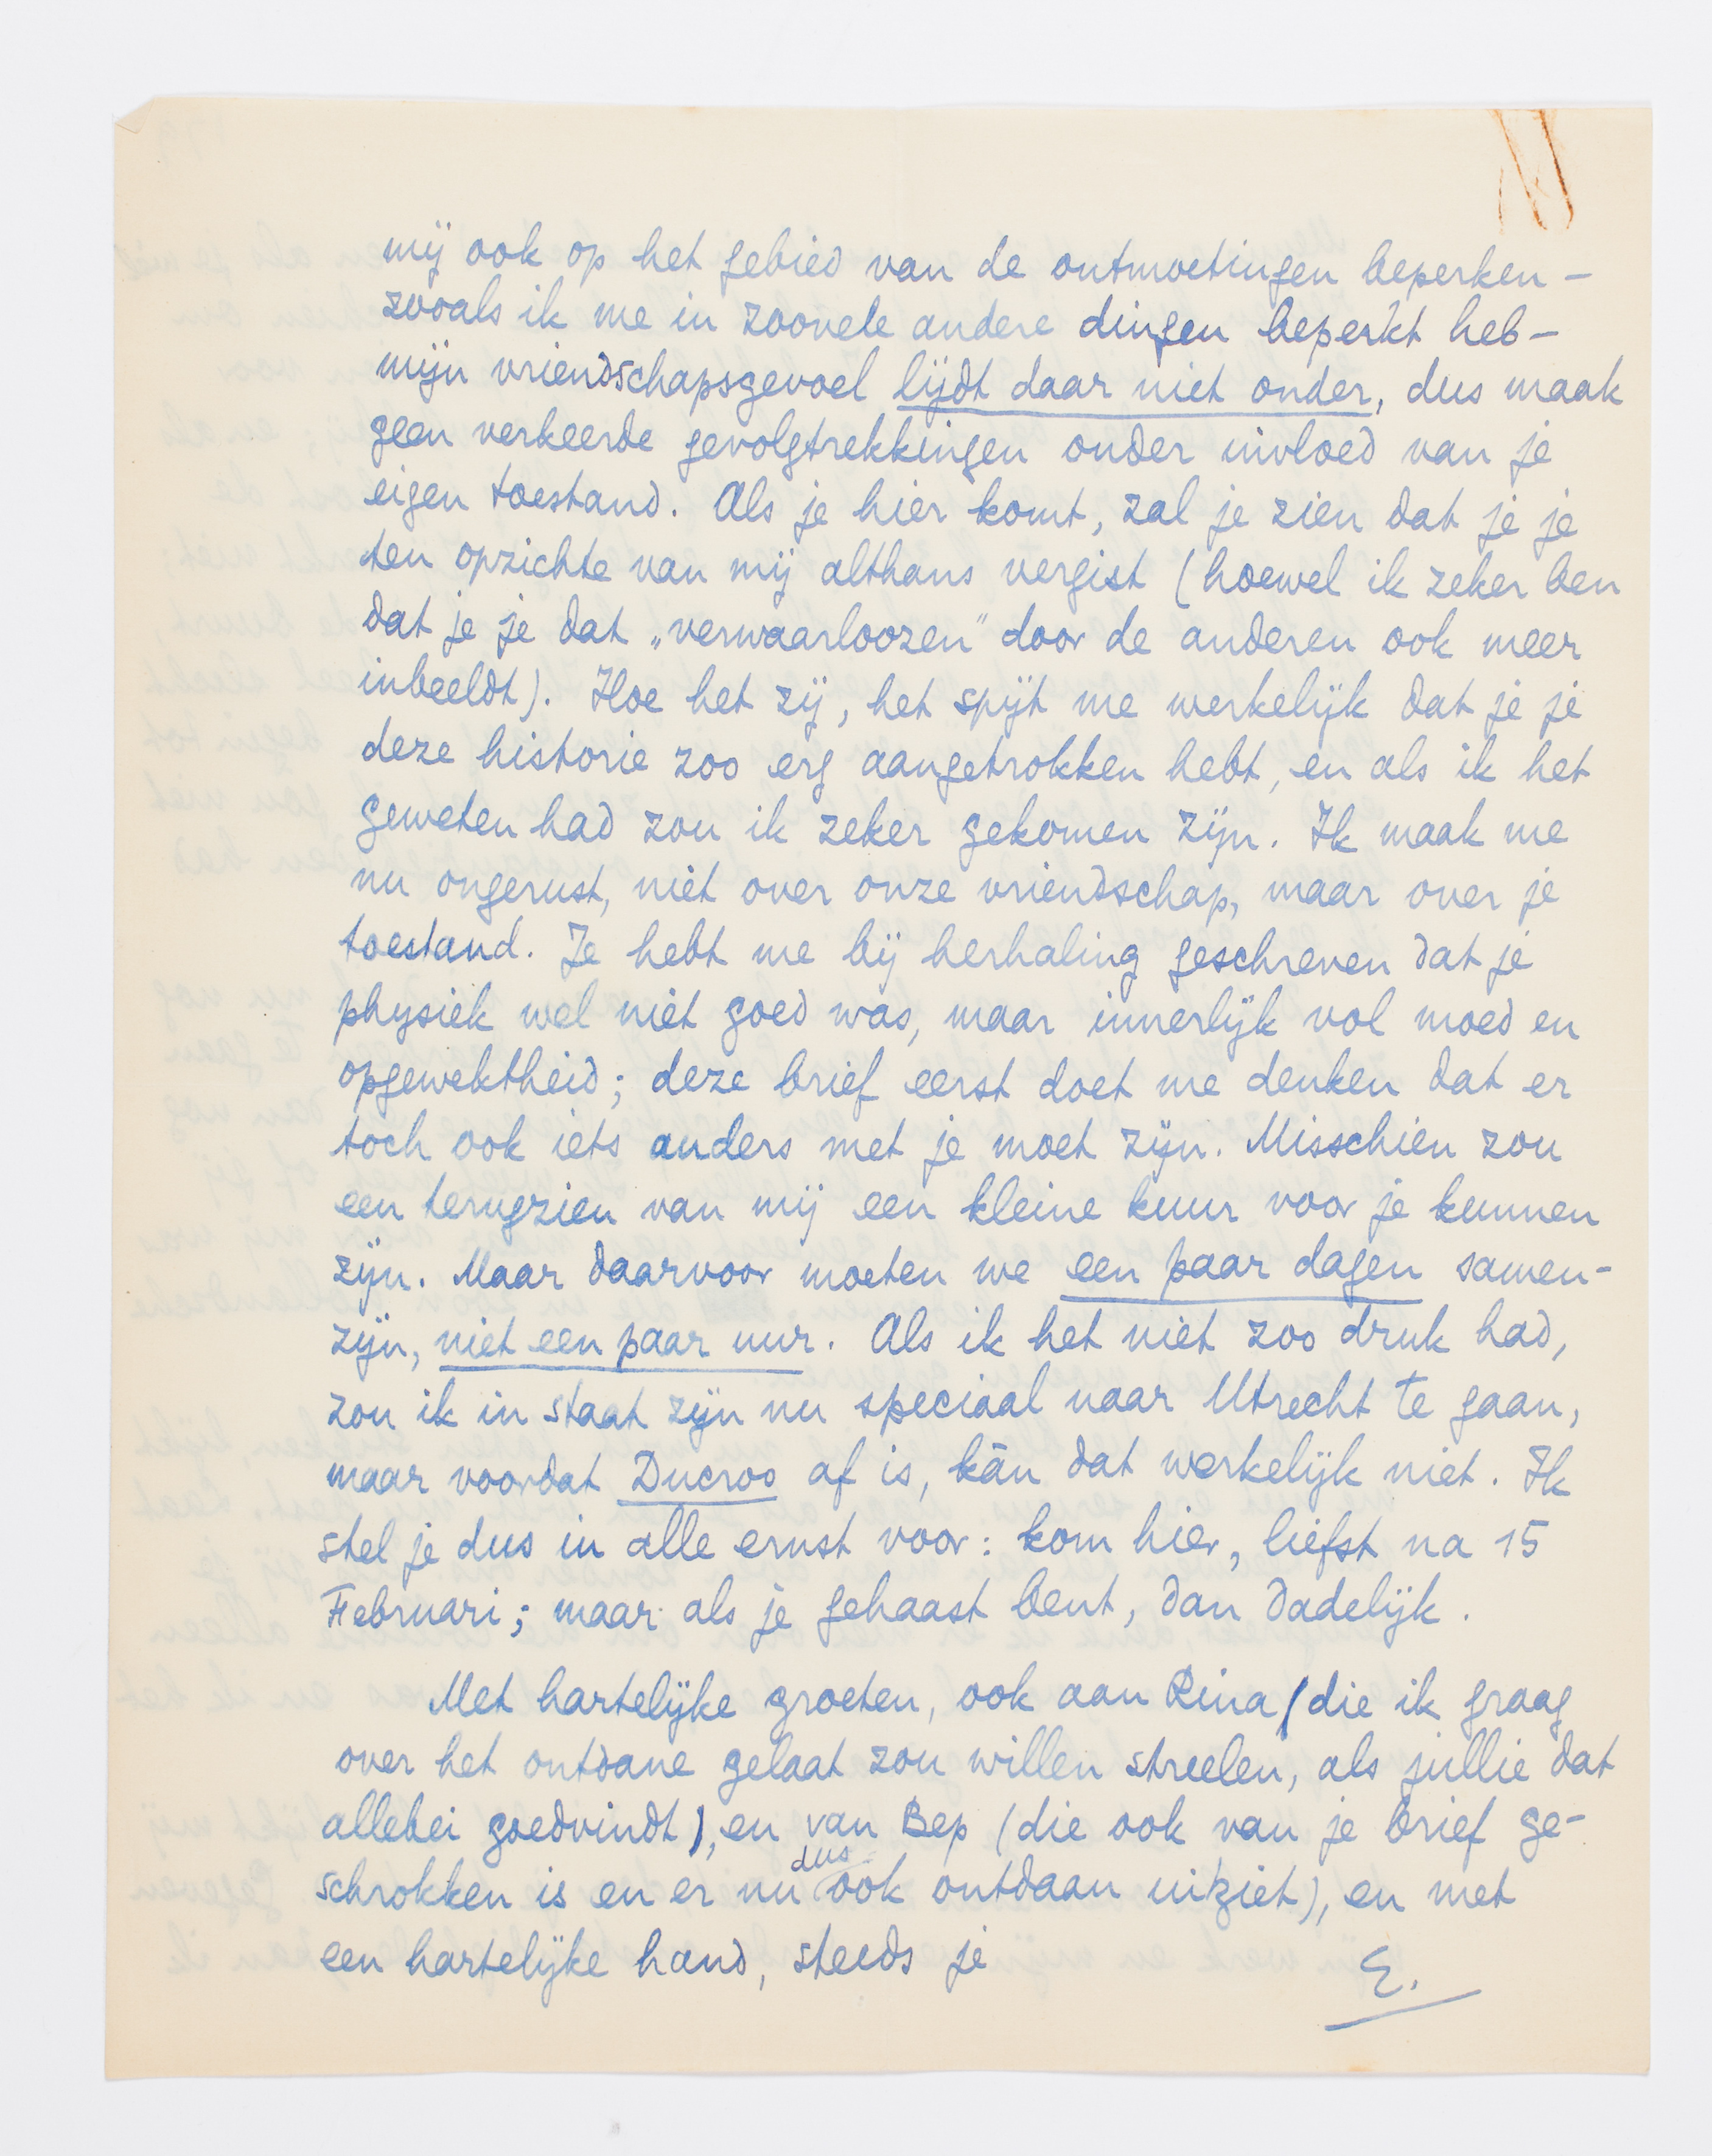 mij ook op het gebied van de ontmoetingen beperken –
zooals ik me in zoovele andere dingen beperkt heb –
mijn vriendschapsgevoel lijdt daar niet onder, dus maak
geen verkeerde gevolgtrekkingen onder invloed van je
eigen toestand. Als je hier komt, zal je zien dat je je
ten opzichte van mij althans vergist (hoewel ik zeker ben
dat je je dat „verwaarloozen" door de anderen ook meer
inbeeldt). Hoe het zij, het spijt me werkelijk dat je je
deze historie zoo erg aangetrokken hebt, en als ik het
geweten had zou ik zeker gekomen zijn. Ik maak me
nu ongerust, niet over onze vriendschap, maar over je
toestand. Je hebt me bij herhaling geschreven dat je
physiek wel niet goed was, maar innerlijk vol moed en
opgewektheid; deze brief eerst doet me denken dat er
toch ook iets anders met je moet zijn. Misschien zou
een terugzien van mij een kleine kuur voor je kunnen
zijn. Maar daarvoor moeten we een paar dagen samen-
zijn, niet een paar uur. Als ik het niet zoo druk had,
zou ik in staat zijn nu speciaal naar Utrecht te gaan,
maar voordat Ducroo af is, kàn dat werkelijk niet. Ik
stel je dus in alle ernst voor: kom hier, liefst na 15
Februari; maar als je gehaast bent, dan dadelijk.
Met hartelijke groeten, ook aan Rina (die ik graag
over het ontdane gelaat zou willen streelen, als jullie dat
allebei goedvindt), en van Bep (die ook van je brief ge-
schrokken is en er nu dus ook ontdaan uitziet), en met
een hartelijke hand, steeds je
E.